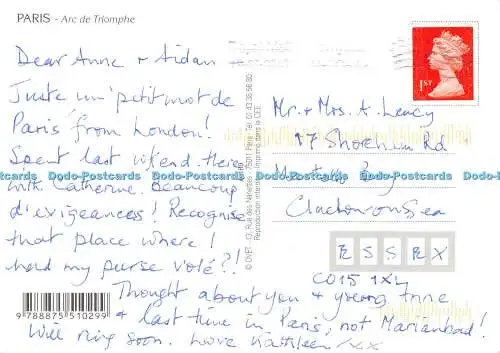 PARIS - Arc de Triomphe
Dear Anne + Aidan
Juste un 'petit mot de
Paris from London!
Spent last w/end there
with Catherine. Beaucoup
d'exigeances! Recognise
that place where I
had my purse volé?!
Thought about you + young Anne
+ last time in Paris, not Marienbad!
Will ring soon. Love Kathleen xx
1ST
Mr. + Mrs. A. Leacy
17 Shoreham Rd
Bay
Clacton on Sea
ESSEX
CO15 1XY
© OVET - 13, Rue des Nanettes - 75011 Paris - Tél. 01 43 38 56 80
Reproduction interdite - Imprimé dans la CEE
9 788875 510299
Dodo-Postcards Dodo-Postcards Dodo-Postcards Dodo-Postcards